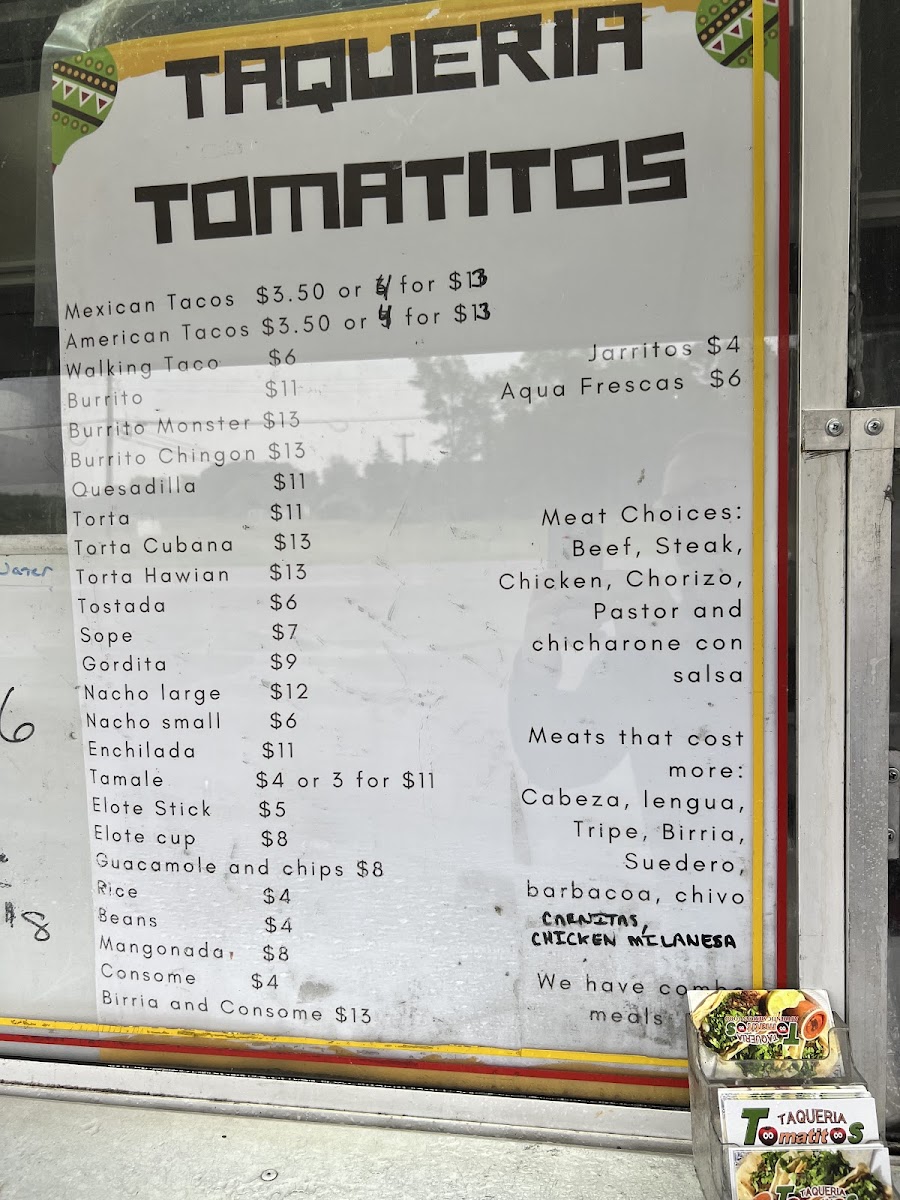 TAQUERIA
TOMATITOS
Mexican Tacos $3.50 or 4 for $13
American Tacos $3.50 or 4 for $13
Walking Taco $6
Burrito $11
Burrito Monster $13
Burrito Chingon $13
Quesadilla $11
Torta $11
Torta Cubana $13
Torta Hawian $13
Tostada $6
Sope $7
Gordita $9
Nacho large $12
Nacho small $6
Enchilada $11
Tamale $4 or 3 for $11
Elote Stick $5
Elote cup $8
Guacamole and chips $8
Rice $4
Beans $4
Mangonada $8
Consome $4
Birria and Consome $13
Jarritos $4
Aqua Frescas $6
Meat Choices:
Beef, Steak,
Chicken, Chorizo,
Pastor and
chicharone con
salsa
Meats that cost
more:
Cabeza, lengua,
Tripe, Birria,
Suedero,
barbacoa, chivo
CARNITAS,
CHICKEN MILANESA
We have combo
meals
6
$8
TAQUERIA
TomatitoS
TAQUERIA
TomatitoS
TAQUERIA